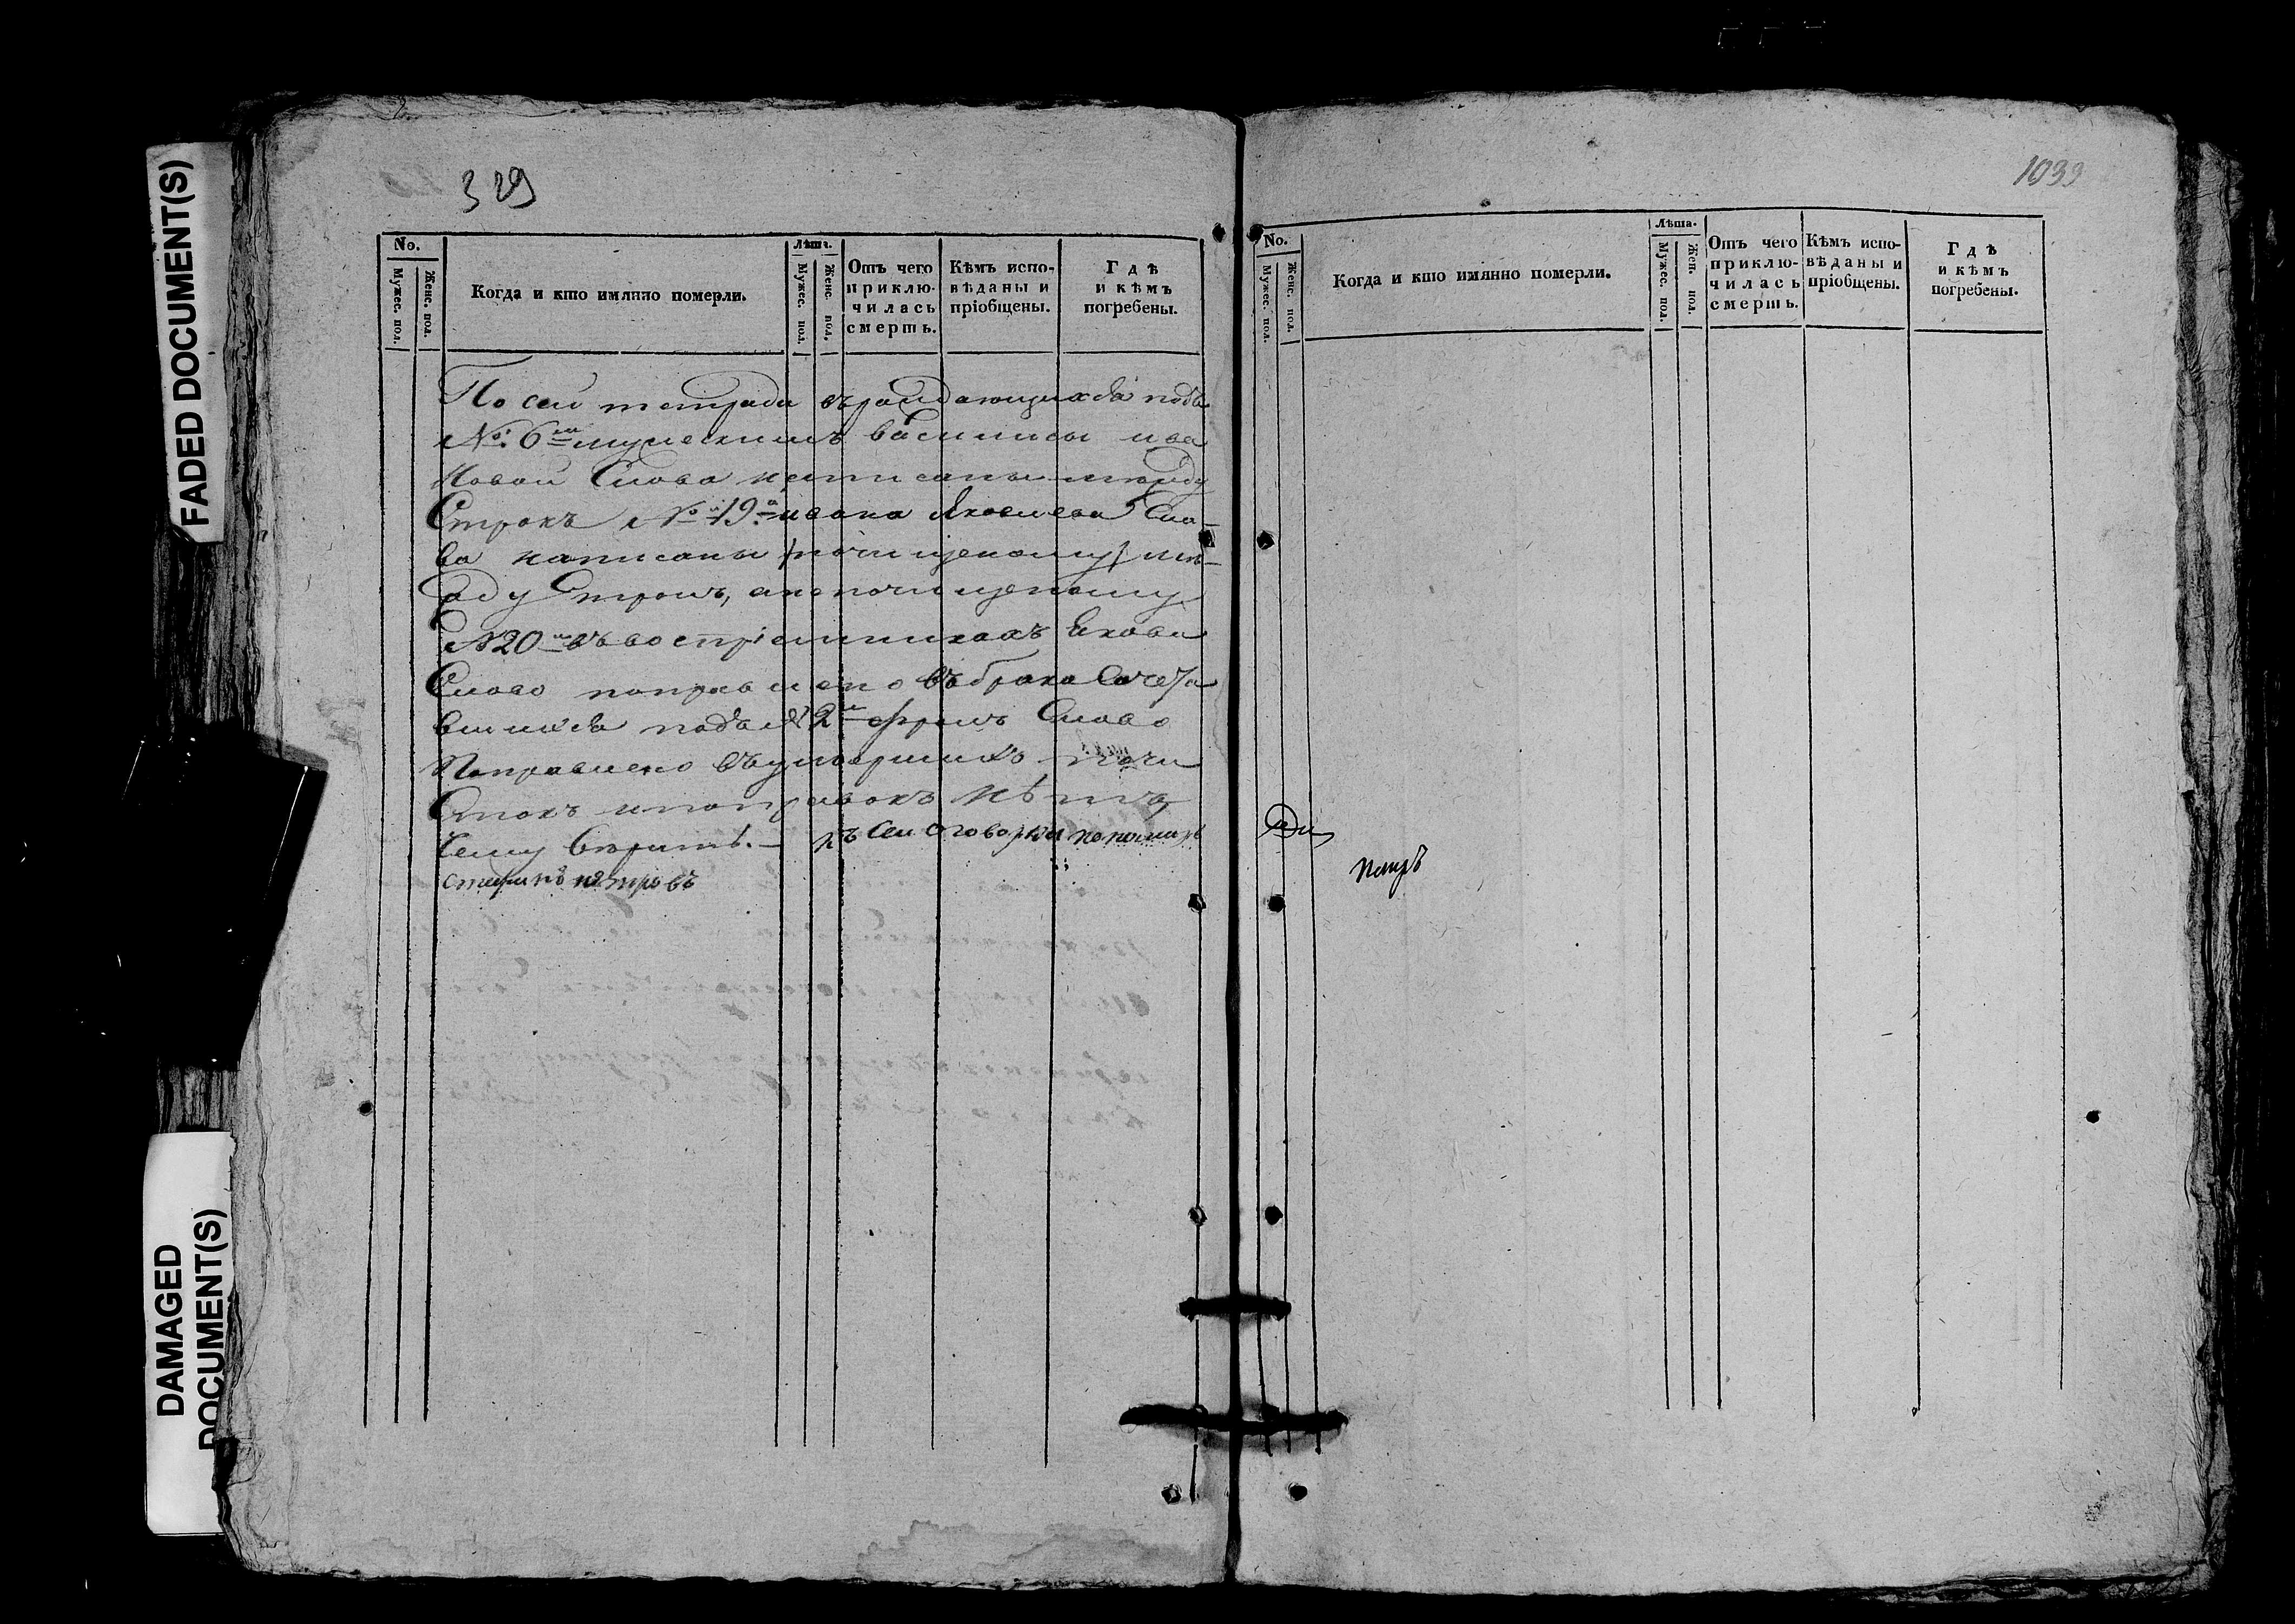 FADED DOCUMENT(S)
DAMAGED DOCUMENT(S)
329
No.
Мужес. пол.
Женс. пол.
Когда и кто имянно померли.
Лѣта.
Мужес. пол.
Женс. пол.
Отъ чего приклю-чилась смерть.
Кѣмъ испо-вѣданы и пріобщены.
Гдѣ и кѣмъ погребены.
По сей тетради въ раждающихся подъ
№ 6м мужескимъ василисы ива
новой Слова написаны между
Строкъ № 19 ивана Яковлева Сло-
ва написаны почищеному
Строкъ, а не почищеному
№ 20м въ воспріемникахъ Якова
Слово поправлено въ брака Сочета
вшихся подъ № 2м Слово
Поправлено въ умершихъ почи
стокъ и поправокъ нѣтъ
Сему вѣрить. къ сей оговорки пономарь
петровъ
1039
No.
Мужес. пол.
Женс. пол.
Когда и кто имянно померли.
Лѣта.
Мужес. пол.
Жен. пол.
Отъ чего приклю-чилась смерть.
Кѣмъ испо-вѣданы и пріобщены.
Гдѣ и кѣмъ погребены.
Петръ